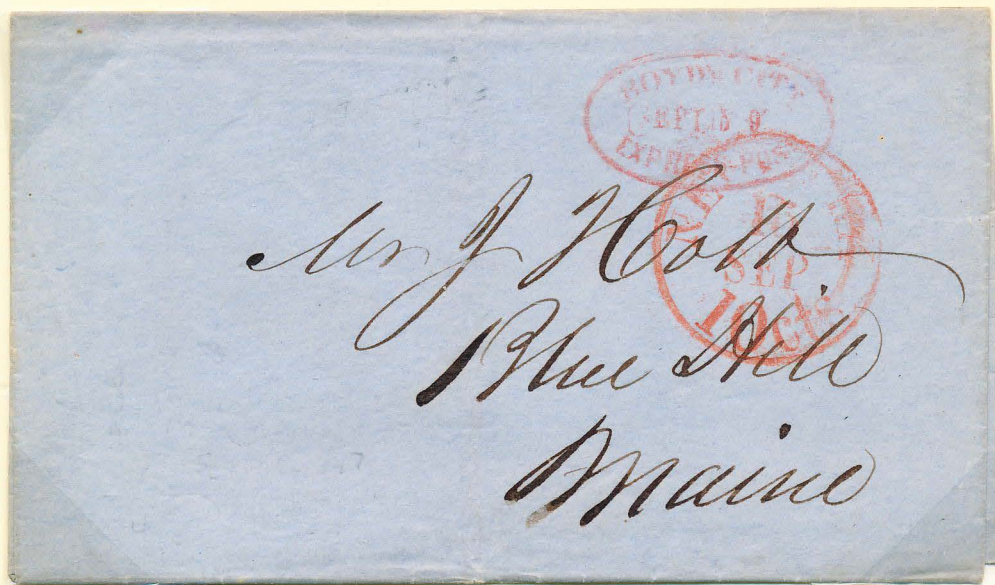 BOYD'S CITY
SEPT
EXPRESS-POST
NEW
SEP
10cts
Mr J Holt
Blue Hill
Maine